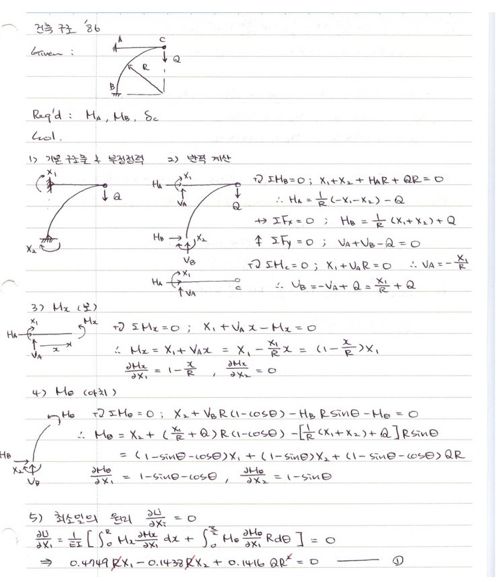 건축구조 '86
Given :
A
C
Q
R
B
Req'd : MA, MB, δc
Sol.
1) 기본 구조물 & 부정정력 2) 반력 계산
X1
Q
X2
HA X1 VA Q
HB X2 VB
HA X1 VA C
↷ ΣMB=0 ; X1+X2+HAR+QR=0
∴ HA=1/R(-X1-X2)-Q
→ ΣFx=0 ; HB=1/R(X1+X2)+Q
↑ ΣFy=0 ; VA+VB-Q=0
↷ ΣMc=0 ; X1+VAR=0 ∴ VA=-X1/R
∴ VB=-VA+Q=X1/R+Q
3) Mx (보)
HA X1 Mx VA x
↷ ΣMx=0 ; X1+VAx-Mx=0
∴ Mx=X1+VAx=X1-X1/R x=(1-x/R)X1
∂Mx/∂X1=1-x/R , ∂Mx/∂X2=0
4) Mθ (아치)
Mθ
HB X2 VB
↷ ΣMθ=0 ; X2+VBR(1-cosθ)-HBRsinθ-Mθ=0
∴ Mθ=X2+(X1/R+Q)R(1-cosθ)-[1/R(X1+X2)+Q]Rsinθ
=(1-sinθ-cosθ)X1+(1-sinθ)X2+(1-sinθ-cosθ)QR
∂Mθ/∂X1=1-sinθ-cosθ , ∂Mθ/∂X2=1-sinθ
5) 최소일의 원리 ∂U/∂X1=0
∂U/∂X1=1/EI[∫0^R Mx ∂Mx/∂X1 dx+∫0^(π/2) Mθ ∂Mθ/∂X1 Rdθ]=0
⇒ 0.4749RX1-0.1438RX2+0.1416QR²=0 ①